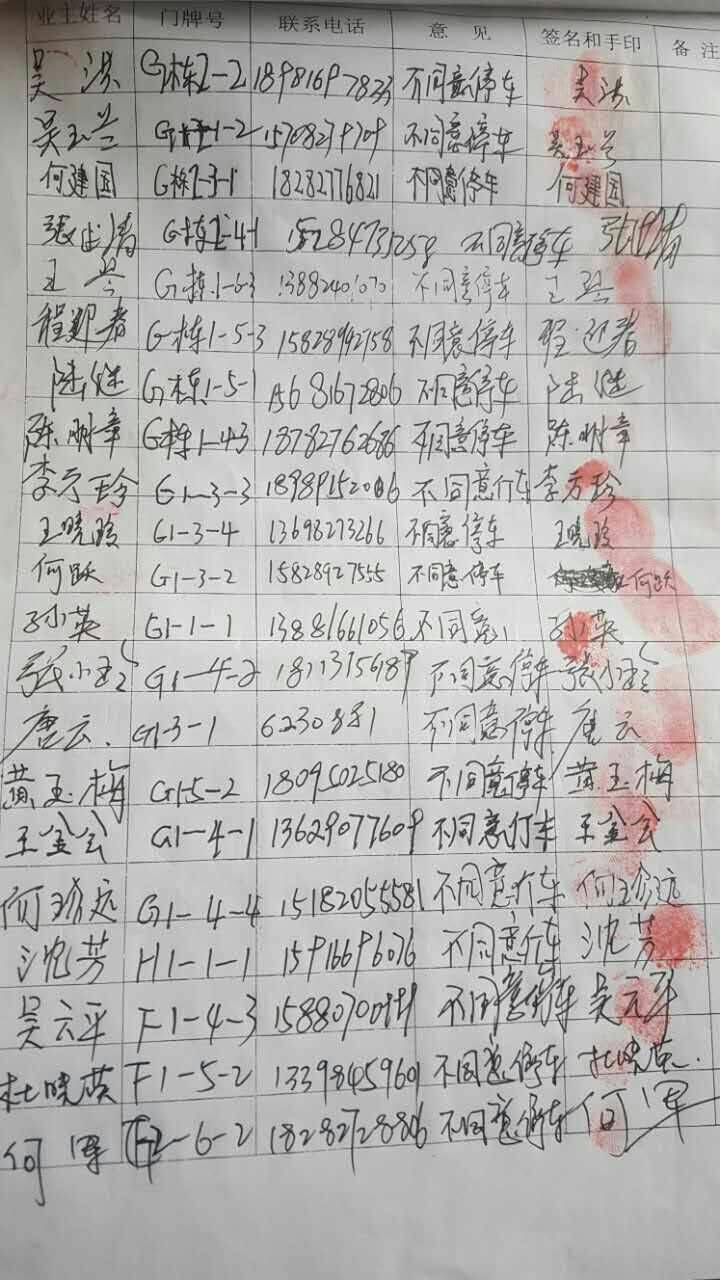 业主姓名 门牌号 联系电话 意 见 签名和手印 备 注
吴洪 G栋1-2-2 18981697833 不同意停车 吴洪
吴玉兰 1-2 不同意停车 吴玉兰
何建国 G栋1-3-1 18282776821 不同意停车 何建国
G栋1-4-1 不同意停车
王兴 G栋1-6-3 13882401070 不同意停车 王兴
程迎春 G栋1-5-3 15828942758 不同意停车 程迎春
陆继 G栋1-5-1 15681672806 不同意停车 陆继
陈明章 G栋1-4-3 18782762686 不同意停车 陈明章
李方珍 G1-3-3 18989152006 不同意行车 李方珍
王晓玲 G1-3-4 13698273266 不同意停车 王晓玲
何跃 G1-3-2 15828927555 不同意停车 何跃
孙小英 G1-1-1 13881661056 不同意 孙小英
张小 G1-4-2 不同意停车 张小
唐云 G1-3-1 6230881 不同意停车 唐云
黄玉梅 G1-5-2 18095025180 不同意停车 黄玉梅
王金会 G1-4-1 13629077609 不同意行车 王金会
何珍远 G1-4-4 15182055581 不同意行车 何珍远
沈芳 H1-1-1 15916696076 不同意行车 沈芳
吴云平 F1-4-3 不同意停车 吴云平
杜晓英 F1-5-2 13398459601 不同意停车 杜晓英
何军 F2-6-2 18282728806 不同意停车 何军